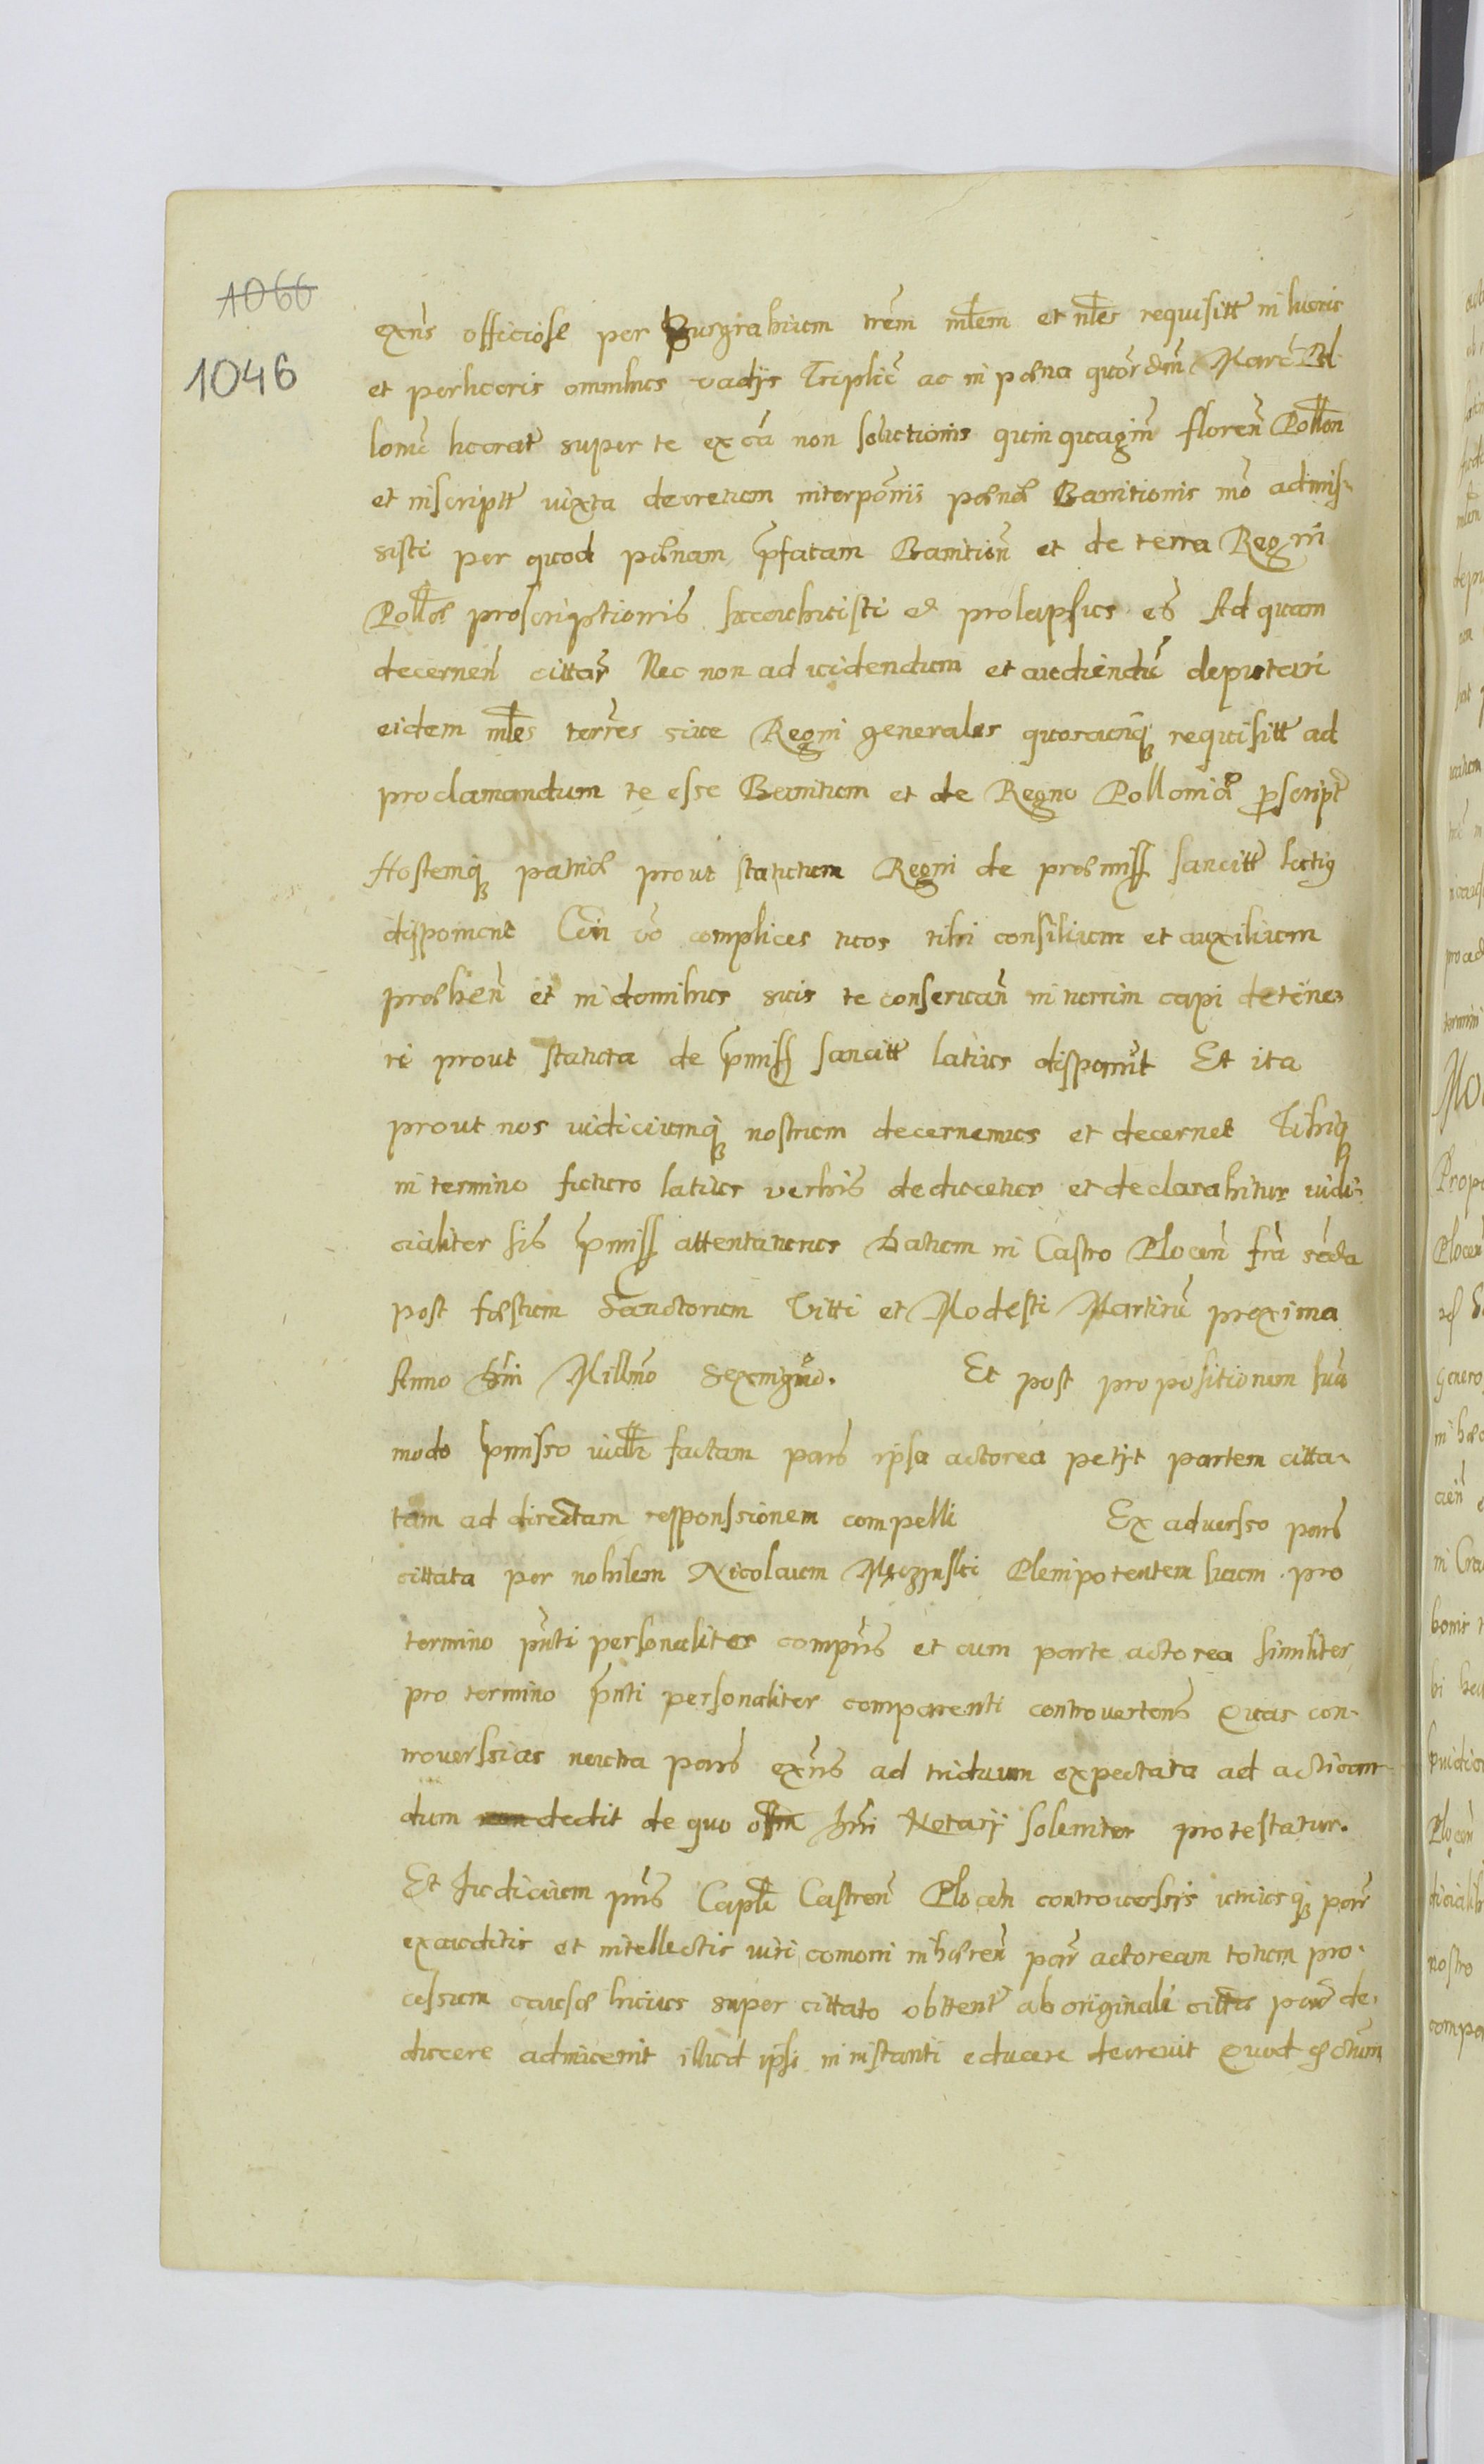 1066
1046
exñs officiose per Burgrabium trẽm mlẽm et nlẽs requisitt̃ in lucris
et perlucris omnibus vadijs Tripliĉ ac in pœna quõrdm̃ Marĉ Pol
lonic̃ lucrat̃ super te ex cã non solutionis quinquagin̄ floreñ Pollon̄
et inscriptt̃ iuxta decretum interpõnii pœnã Banitionis m̃o admis-
sisti per quod pœnam p̃fatam Banitioñ et de terra Regni
Pollõœ proscriptionis succubuisti et prolapsus es Ad quam
decerneñ cittar̃ Nec non ad videndum et audiendũ deputari
eidem mlẽs terr̃es siue Regni generales quoscunq; requisitt̃ ad
proclamandum te esse Banitum et de Regno Polloniæ p̃script̃
Hostemq; patriæ prout statutum Regni de præmiss̃ sancitt̃ latiꝰ
disponunt Cũ v̄o complices tuos tibi consilium et auxilium
præbeñ et in domibus suis te conseruañ in turrim capi detine-
ri prout statuta de p̃miss̃ sancitt̃ latius disponũt Et ita
prout nos iudiciumq; nostrum decernemus et decernet Tibiq;
in termino futuro latius verbis deducetur et declarabitur iudi-
cialiter sis p̃miss̃ attentaturus Datum in Castro Plocen̄ fr̃a sc̃da
post fæstum Sanctorum Vitti et Modesti Martirũ proxima
Anno Dñi Millm̃o Sexcingm̃o. Et post propositionem suã
modo p̃misso iudlr̃ factam pars ipsa actorea petijt partem citta-
tam ad directam responssionem compelli Ex aduersso pars
cittata per nobilem Nicolaum Męczynski Plenipotentem suum pro
termino p̃nti personaliter comp̃ns et cum parte actorea similiter
pro termino p̃nti personaliter comparenti controvertens Quas con-
trouerssias neutra pars exñs ad triduum expectata ad actican-
dum dedit de quo offm̃ hui Notarij solenniter protestatur.
Et Iudicium p̃ns Caplẽ Castreñ Plocen̄ controuerssijs utriusq; par̃
exauditis et intellectis viri comorri inhæreñ par̃ actoream totum pro-
cessum causæ huius super cittato obttent̃ ab originali citt̃e par̃ de-
ducere admiserit illud ipsi in instanti educere decreuit Quod